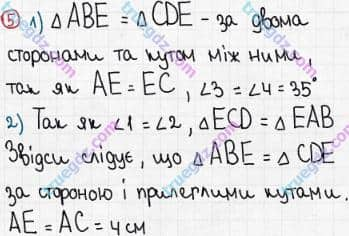 5 1) △ ABE = △ CDE - за двома
сторонами та кутом між ними,
так як AE = EC, ∠3 = ∠4 = 35°
2) Так як ∠1 = ∠2, △ ECD = △ EAB
Звідси слідує, що △ ABE = △ CDE
за стороною і прилеглими кутами.
AE = AC = 4 см